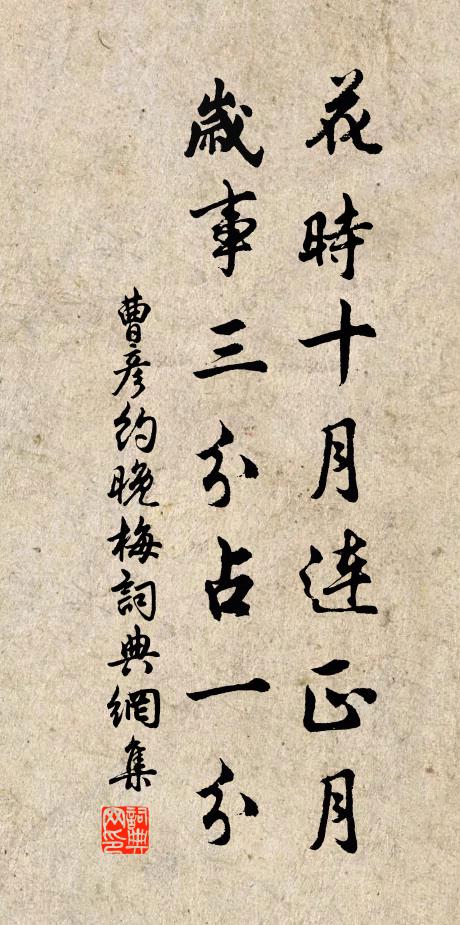 花時十月連正月
歲事三分占一分
曹彥約晚梅詞典網集
詞典网印